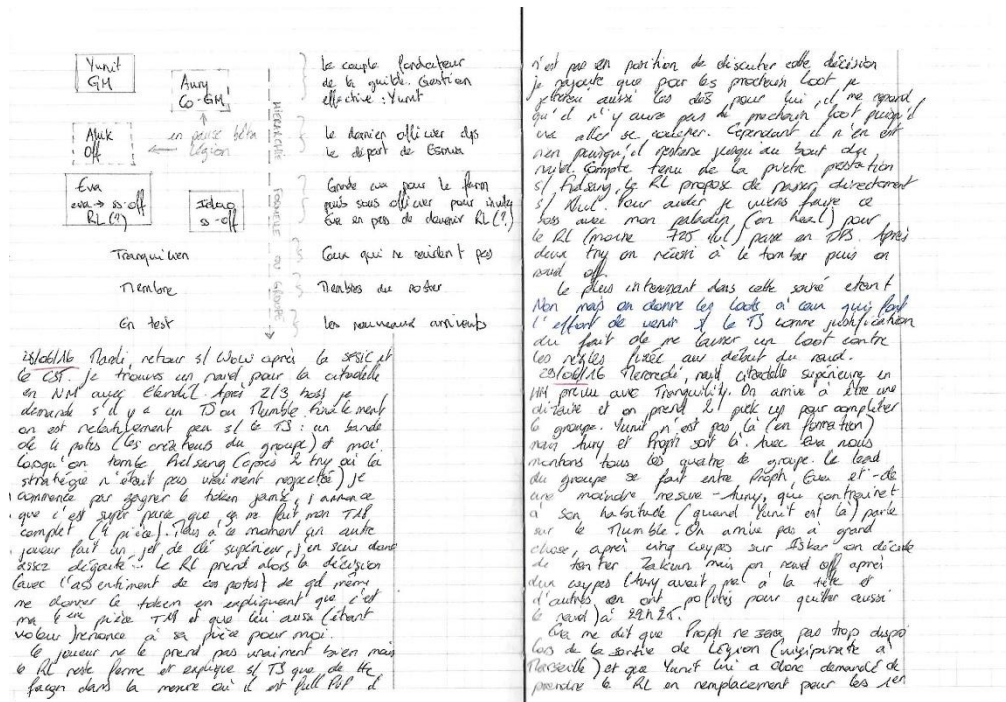 Yunit
GM
Auny
Co-GM
le couple fondateur
de la guilde. Gestion
effective : Yunit
Aluk
Off
en pause bêta
Légion
le dernier officier dps
le départ de
Eva
eva → ss-off
RL (?)
ss-off
pour le farm
puis sous officier pour
en pas de devenir RL (?)
Tranquilien
Ceux qui ne raident pas
Membre
Membres du roster
En test
les nouveaux arrivants
28/06/16 Mardi, retour s/ WoW après la
le je trouves un raid pour la citadelle
en NM avec Elendil. Après 2/3 boss je
demande s'il y a un TS ou Mumble. Finalement
on est relativement peu s/ le TS : un bande
de 4 potes (les créateurs du groupe) et moi.
Lorsqu'on tombe (après 2 try où la
stratégie n'était pas vraiment respectée) je
commence par gagner le token jambe, j'annonce
que c'est super parce que ça me fait mon T18
complet (4 pièce). Mais à ce moment un autre
joueur fait un jet de dé supérieur, j'en suis donc
assez dégouté.. Le RL prend alors la décision
(avec l'assentiment de ces potes) de qd même
me donner le token en expliquant que c'est
ma 4ème pièce T18 et que lui aussi (étant
voleur) renonce à sa pièce pour moi.
Le joueur ne le prend pas vraiment bien mais
le RL reste ferme et explique s/ TS que, de tte
façon dans la mesure où il est full PvP il
n'est pas en position de discuter cette décision
je rajoute que pour les prochain loot je
jetterai aussi les dés pour lui, il me répond
qu'il n'y aura pas de prochain loot puisqu'il
va aller se . Cependant il n'en est
rien puisqu'il restera jusqu'au bout du
raid. Compte tenu de la piètre prestation
s/ , le RL propose de passer directement
s/ . Pour aider je viens faire ce
boss avec mon paladin (en heal) pour
le RL (moine 725 ilvl) passe en DPS. Après
deux try on réussi à le tomber puis on
raid off.
Le plus interessant dans cette soiré etant
Non mais on donne les loots à ceux qui font
l'effort de venir s/ le TS comme justification
du fait de me laisser un loot contre
les règles fixée au début du raid.
29/06/16 Mercredi, raid citadelle supérieure en
HM prévu avec Tranquility. On arrive à être une
dizaine et on prend 2 pick up pour compléter
le groupe. Yunit n'est pas là (en formation)
mais Auny et Proph sont là. Avec Eva nous
montons tous les quatre le groupe. Le lead
du groupe se fait entre Proph, Eva et - de
une moindre mesure - Auny, qui contrairmet
à son habitude (quand Yunit est là) parle
sur le Mumble. On arrive pas à grand
chose, après cinq wypes sur Iskar on décide
de tenter Zakuun mais on raid off après
deux wypes (Auny avait mal à la tête et
d'autres en ont pour quitter aussi
le raid) à 22h25.
Eva me dit que Proph ne sera pas trop dispo
lors de la sortie de Légion (vigipirate à
Marseille) et que Yunit lui a donc demandé de
prendre le RL en remplacement pour les 1er